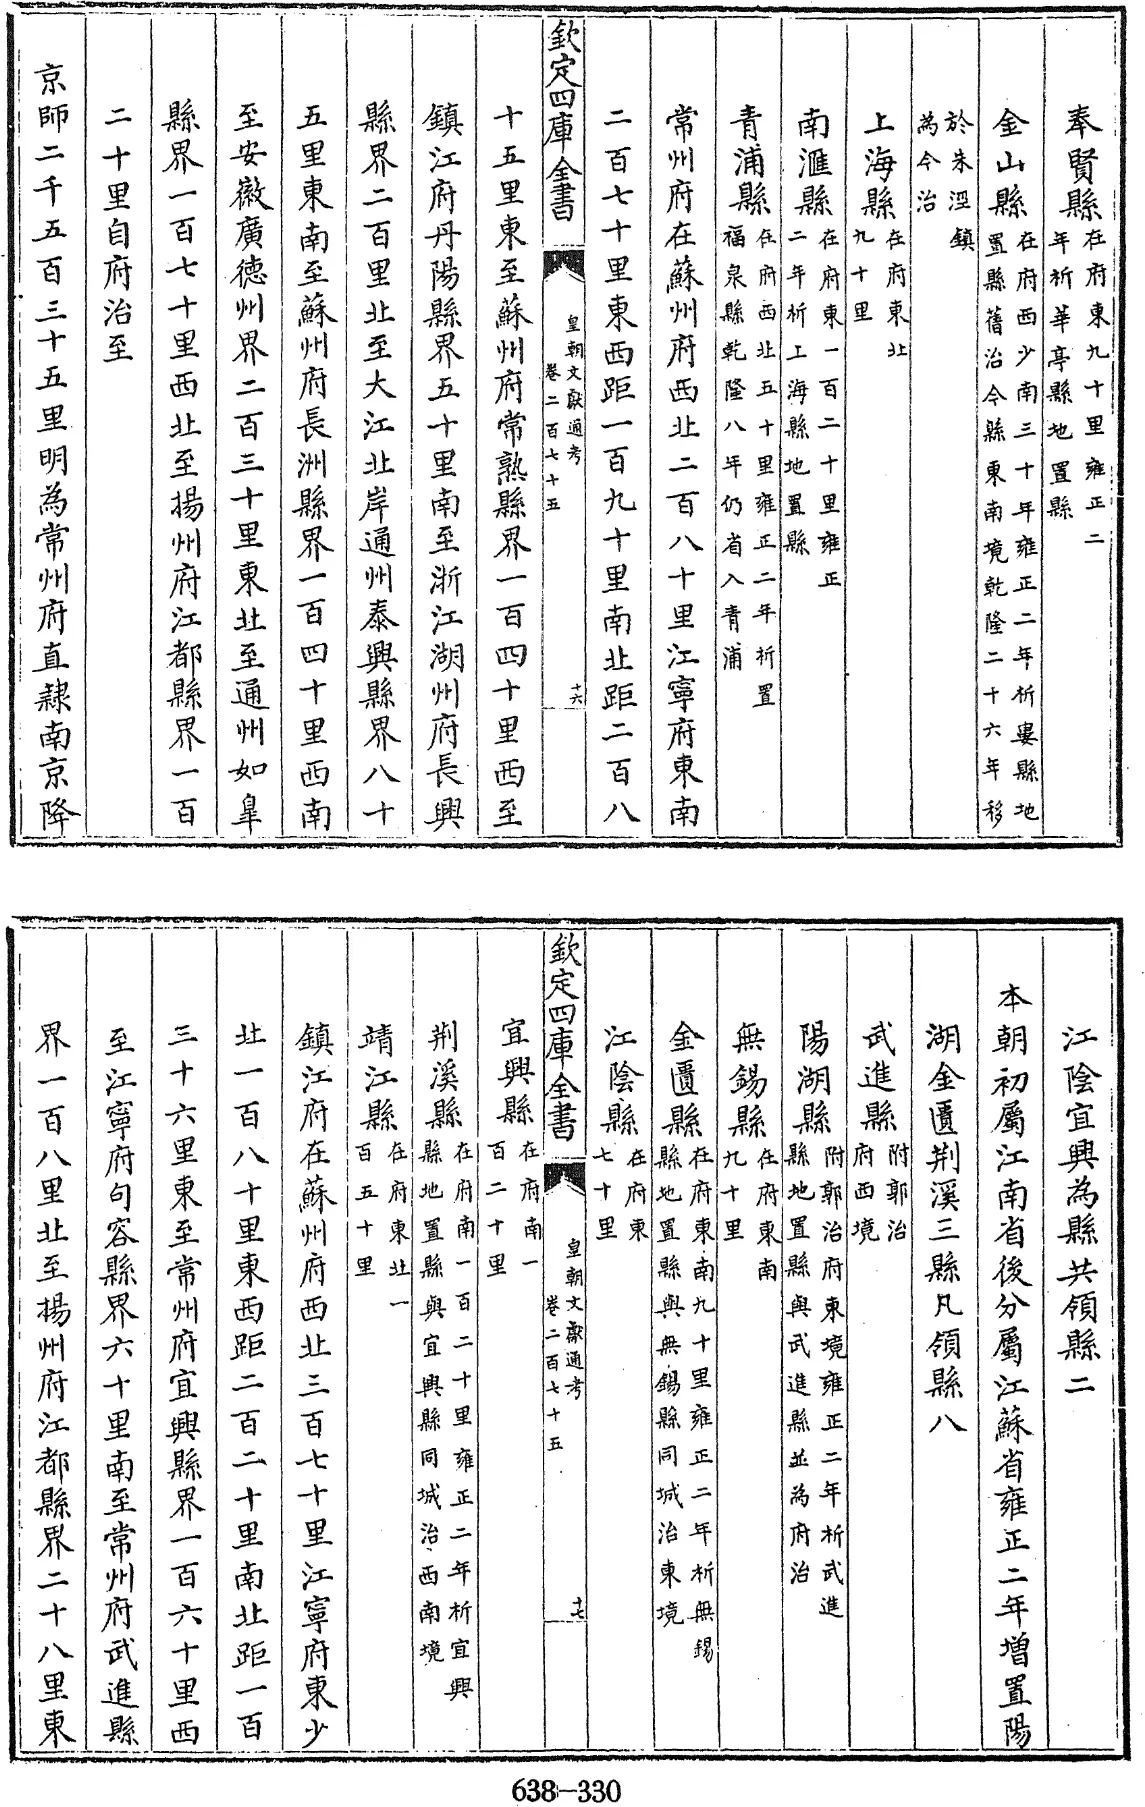 奉賢縣在府東九十里雍正二年析華亭縣地置縣
金山縣在府西少南三十年雍正二年析婁縣地置縣舊治今縣東南境乾隆二十六年移
於朱涇鎮為今治
上海縣在府東北九十里
南滙縣在府東一百二十里雍正二年析上海縣地置縣
青浦縣在府西北五十里雍正二年析置福泉縣乾隆八年仍省入青浦
常州府在蘇州府西北二百八十里江寧府東南
二百七十里東西距一百九十里南北距二百八
欽定四庫全書
皇朝文獻通考
卷二百七十五
十六
十五里東至蘇州府常熟縣界一百四十里西至
鎮江府丹陽縣界五十里南至浙江湖州府長興
縣界二百里北至大江北岸通州泰興縣界八十
五里東南至蘇州府長洲縣界一百四十里西南
至安徽廣德州界二百三十里東北至通州如臯
縣界一百七十里西北至揚州府江都縣界一百
二十里自府治至
京師二千五百三十五里明為常州府直隸南京降
江陰宜興為縣共領縣二
本朝初屬江南省後分屬江蘇省雍正二年增置陽
湖金匱荆溪三縣凡領縣八
武進縣附郭治府西境
陽湖縣附郭治府東境雍正二年析武進縣地置縣與武進縣並為府治
無錫縣在府東南九十里
金匱縣在府東南九十里雍正二年析無錫縣地置縣與無錫縣同城治東境
江陰縣在府東七十里
欽定四庫全書
皇朝文獻通考
卷二百七十五
十七
宜興縣在府南一百二十里
荆溪縣在府南一百二十里雍正二年析宜興縣地置縣與宜興縣同城治西南境
靖江縣在府東北一百五十里
鎮江府在蘇州府西北三百七十里江寧府東少
北一百八十里東西距二百二十里南北距一百
三十六里東至常州府宜興縣界一百六十里西
至江寧府句容縣界六十里南至常州府武進縣
界一百八里北至揚州府江都縣界二十八里東
638-330